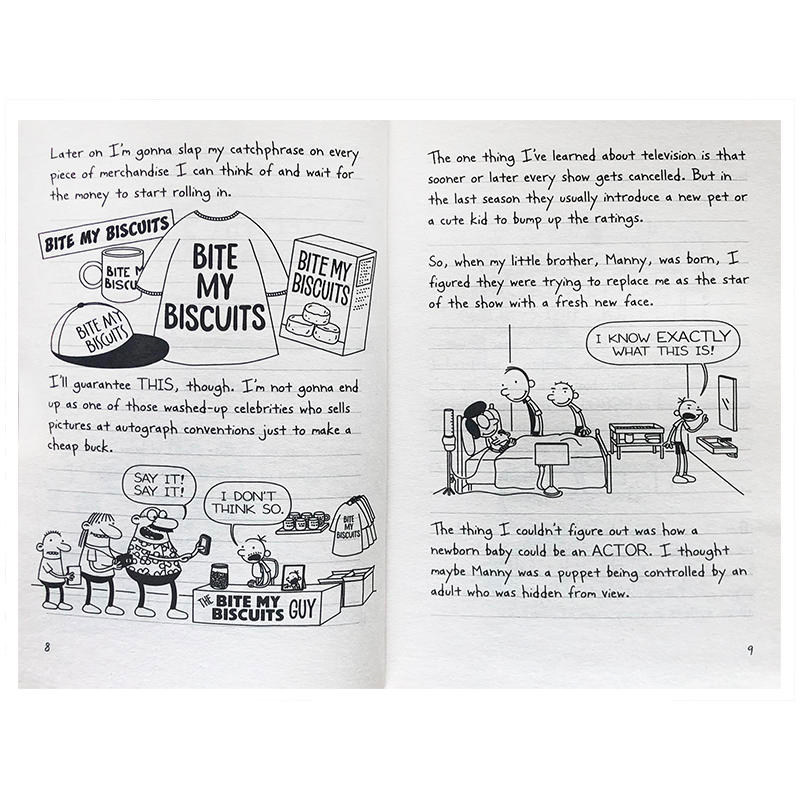 Later on I'm gonna slap my catchphrase on every
piece of merchandise I can think of and wait for
the money to start rolling in.
BITE MY BISCUITS
BITE MY
BISCU
BITE
MY
BISCUITS
BITE MY
BISCUITS
BITE MY
BISCUITS
I'll guarantee THIS, though. I'm not gonna end
up as one of those washed-up celebrities who sells
pictures at autograph conventions just to make a
cheap buck.
SAY IT!
SAY IT!
I DON'T
THINK SO.
BITE
MY
BISCUITS
THE BITE MY
BISCUITS GUY
8
The one thing I've learned about television is that
sooner or later every show gets cancelled. But in
the last season they usually introduce a new pet or
a cute kid to bump up the ratings.
So, when my little brother, Manny, was born, I
figured they were trying to replace me as the star
of the show with a fresh new face.
I KNOW EXACTLY
WHAT THIS IS!
The thing I couldn't figure out was how a
newborn baby could be an ACTOR. I thought
maybe Manny was a puppet being controlled by an
adult who was hidden from view.
9